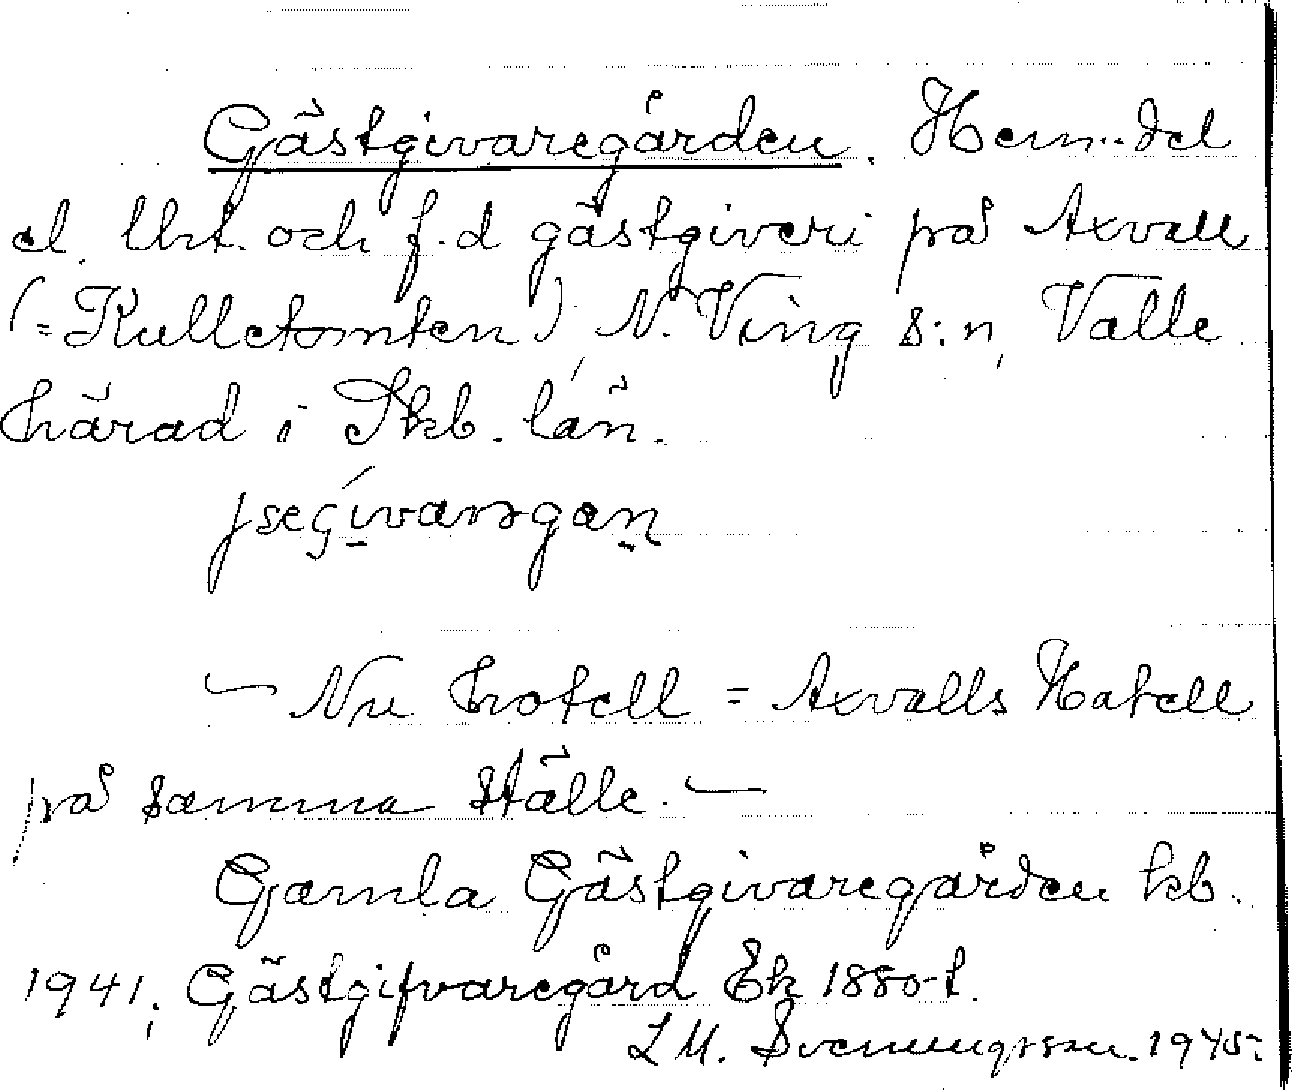 Gästgivaregården. Hem.del
el. Uht. och f.d gästgiveri på Axvall
(=Kulletomten), N. Ving s:n, Valle
härad i Skb. län.
— Nu hotell = Axvalls Hotell
på samma ställe. —
Gamla Gästgivaregården kb.
1941; Gästgifvaregård Ek 1880-t.
L M. Svenungsson. 1945.